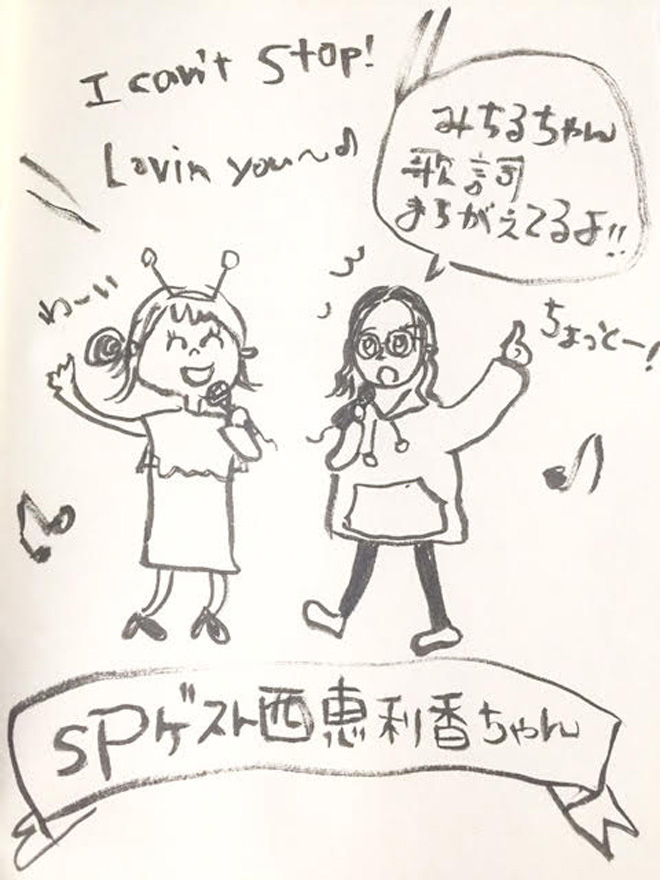 I can't stop!
Lovin you〜♪
みちるちゃん
歌詞
まちがえてるよ!!
わーい
ちょっとー!
SPゲスト西恵利香ちゃん